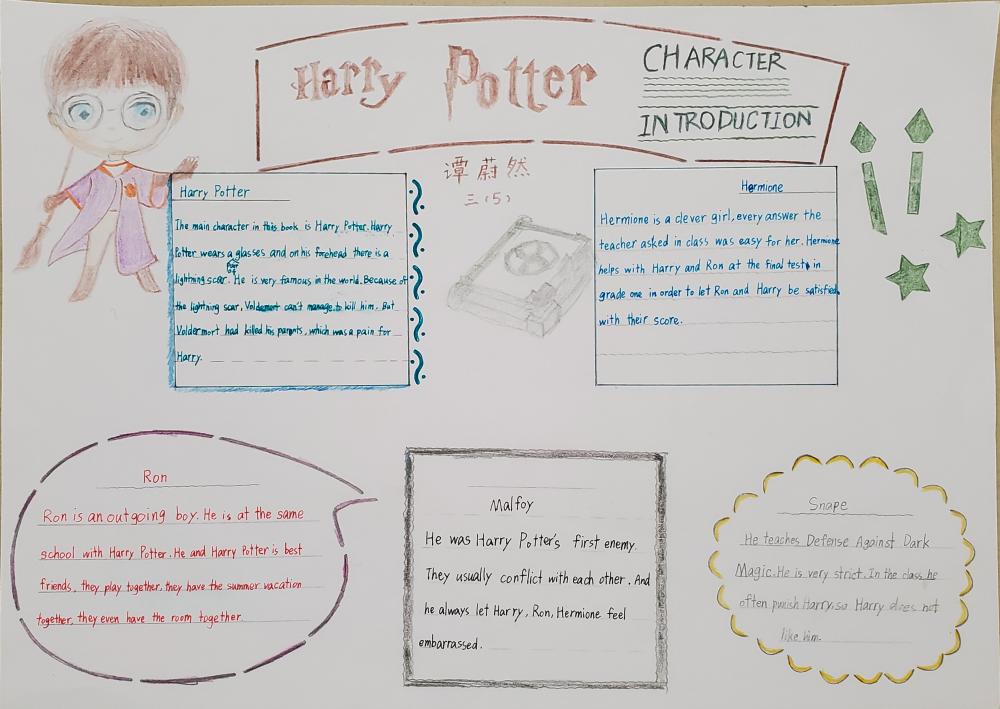 Harry Potter
CHARACTER
INTRODUCTION
谭蔚然
三(5)
Harry Potter
The main character in this book is Harry Potter. Harry
Potter wears a glasses and on his forehead there is a
lightning scar. He is very famous in the world. Because of
the lightning scar, Voldemort can't manage to kill him. But
Voldermort had killed his parents, which was a pain for
Harry.
Hermione
Hermione is a clever girl, every answer the
teacher asked in class was easy for her. Hermione
helps with Harry and Ron at the final test in
grade one in order to let Ron and Harry be satisfied
with their score.
Ron
Ron is an outgoing boy. He is at the same
school with Harry Potter. He and Harry Potter is best
friends, they play together, they have the summer vacation
together, they even have the room together.
Malfoy
He was Harry Potter's first enemy.
They usually conflict with each other. And
he always let Harry, Ron, Hermione feel
embarrassed.
Snape
He teaches Defense Against Dark
Magic. He is very strict. In the class, he
often punish Harry, so Harry does not
like him.